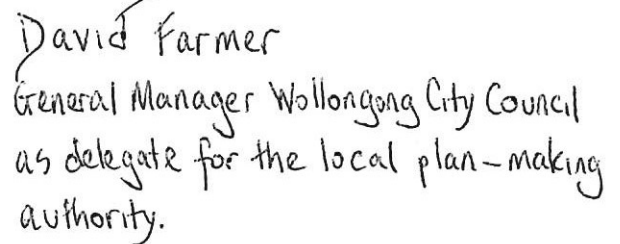 David Farmer
General Manager Wollongong City Council
as delegate for the local plan-making
authority.